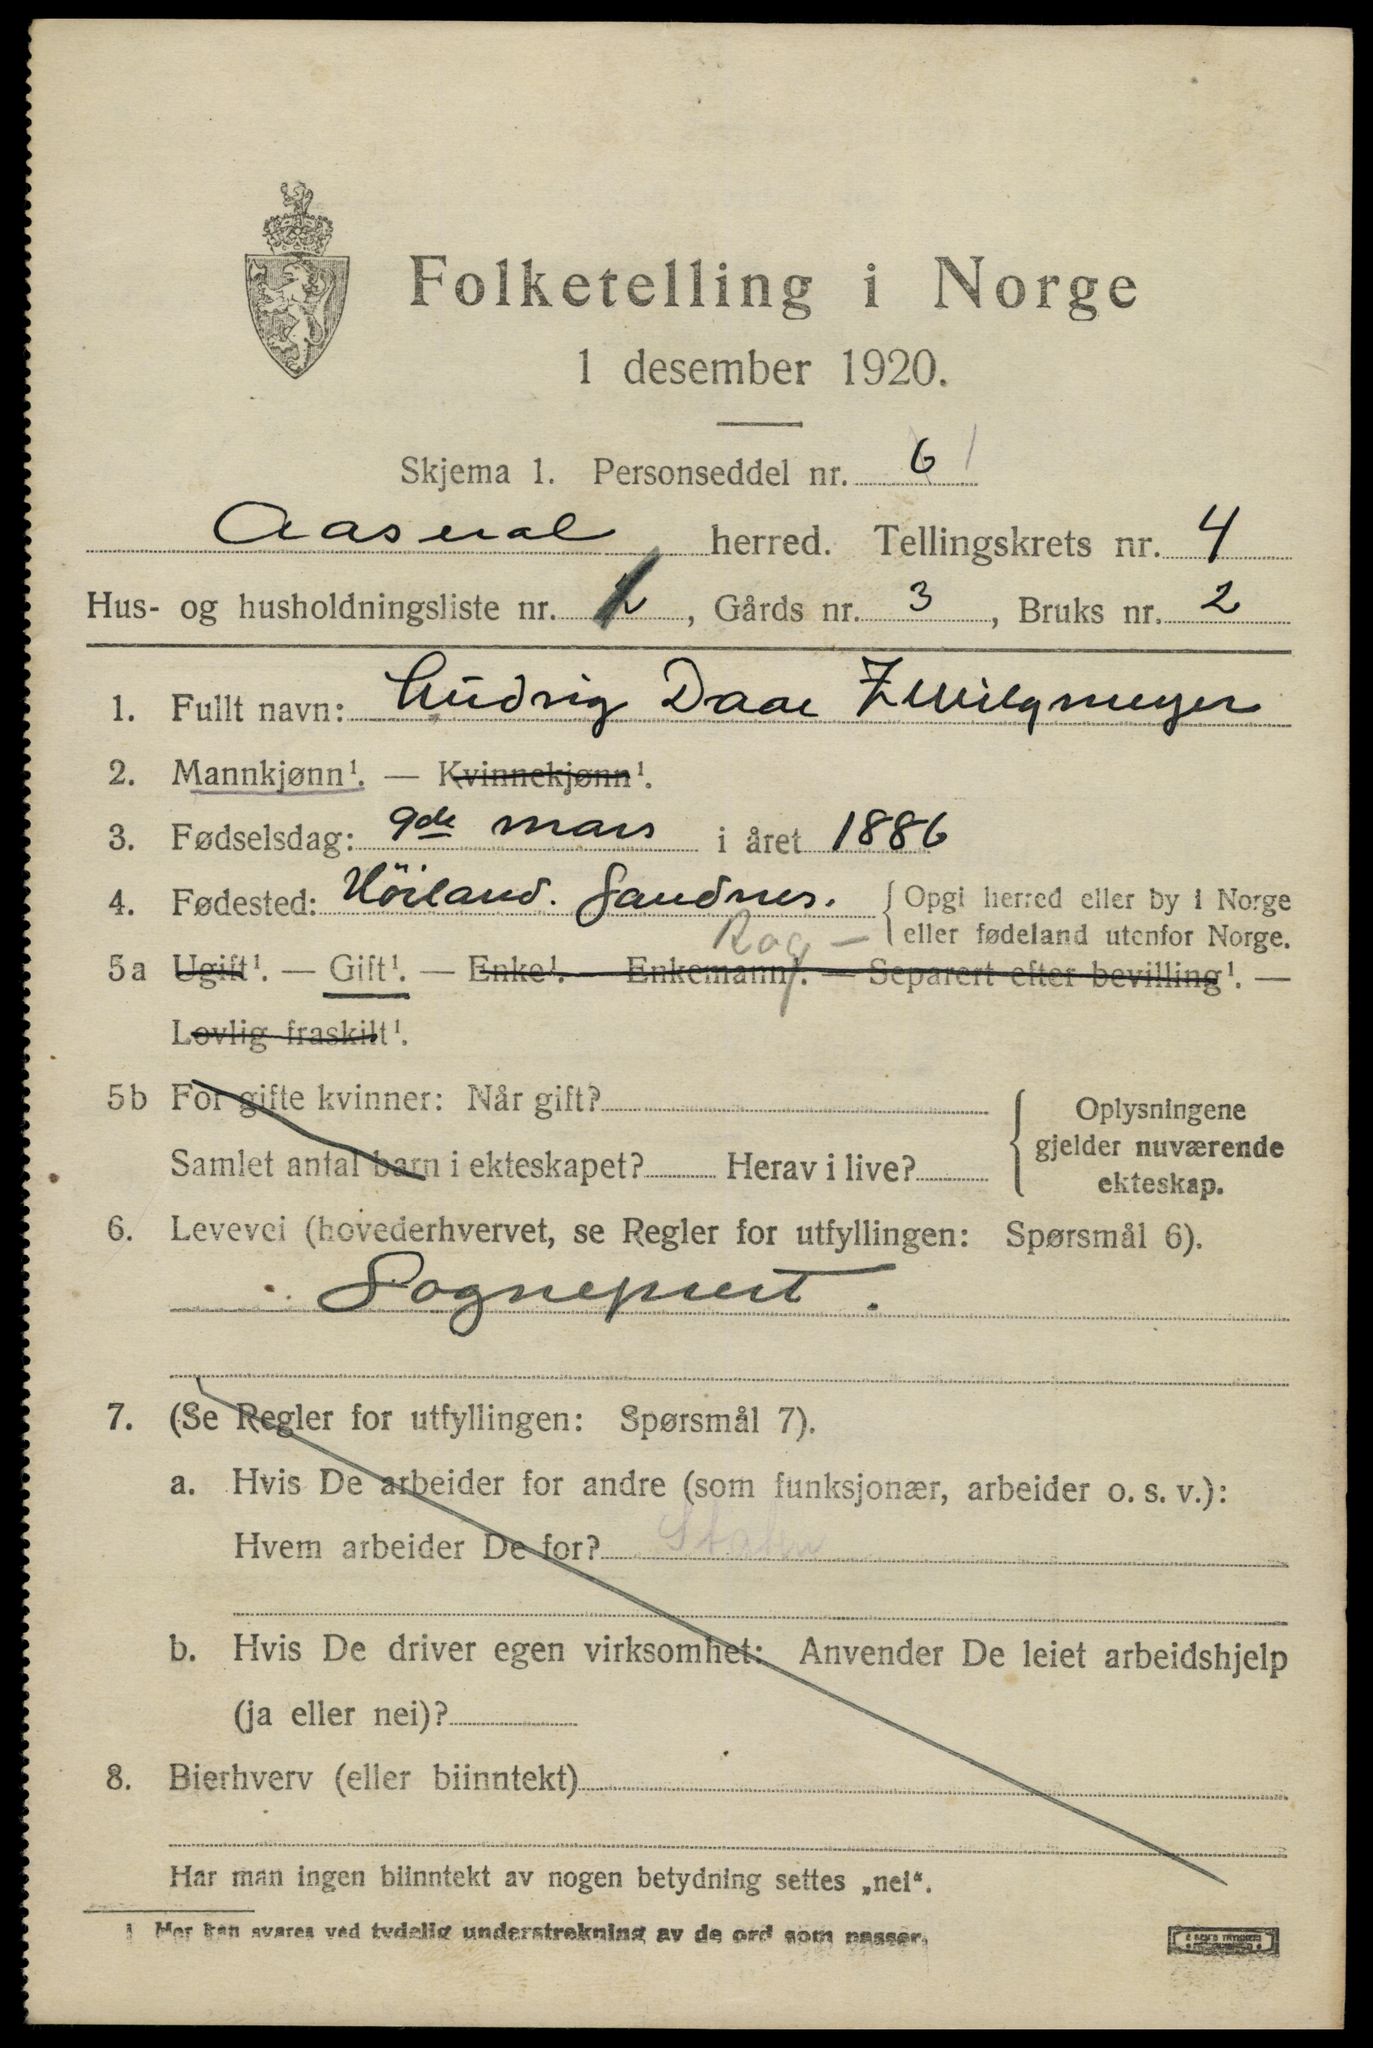 Folketelling i Norge
1 desember 1920.
Skjema 1. Personseddel nr. 6 1
Aaseral herred. Tellingskrets nr. 4
Hus- og husholdningsliste nr. , Gårds nr. 3, Bruks nr. 2
1. Fullt navn: Ludvig Daae Zwilgmeyer
2. Mannkjønn¹. — Kvinnekjønn¹.
3. Fødselsdag: 9de mars i året 1886
4. Fødested: Höiland. Sandnes. { Opgi herred eller by i Norge
Rog — eller fødeland utenfor Norge.
5a Ugift¹. — Gift¹. — Enke¹. — Enkemann¹. — Separert efter bevilling¹. —
Lovlig fraskilt¹.
5b For gifte kvinner: Når gift? { Oplysningene
gjelder nuværende
Samlet antal barn i ekteskapet? Herav i live? ekteskap.
6. Levevei (hovederhvervet, se Regler for utfyllingen: Spørsmål 6).
Sogneprest.
7. (Se Regler for utfyllingen: Spørsmål 7).
a. Hvis De arbeider for andre (som funksjonær, arbeider o. s. v.):
Hvem arbeider De for? Staten
b. Hvis De driver egen virksomhet: Anvender De leiet arbeidshjelp
(ja eller nei)?
8. Bierhverv (eller biinntekt)
Har man ingen biinntekt av nogen betydning settes „nei“.
¹ Her kan svares ved tydelig understrekning av de ord som passer.